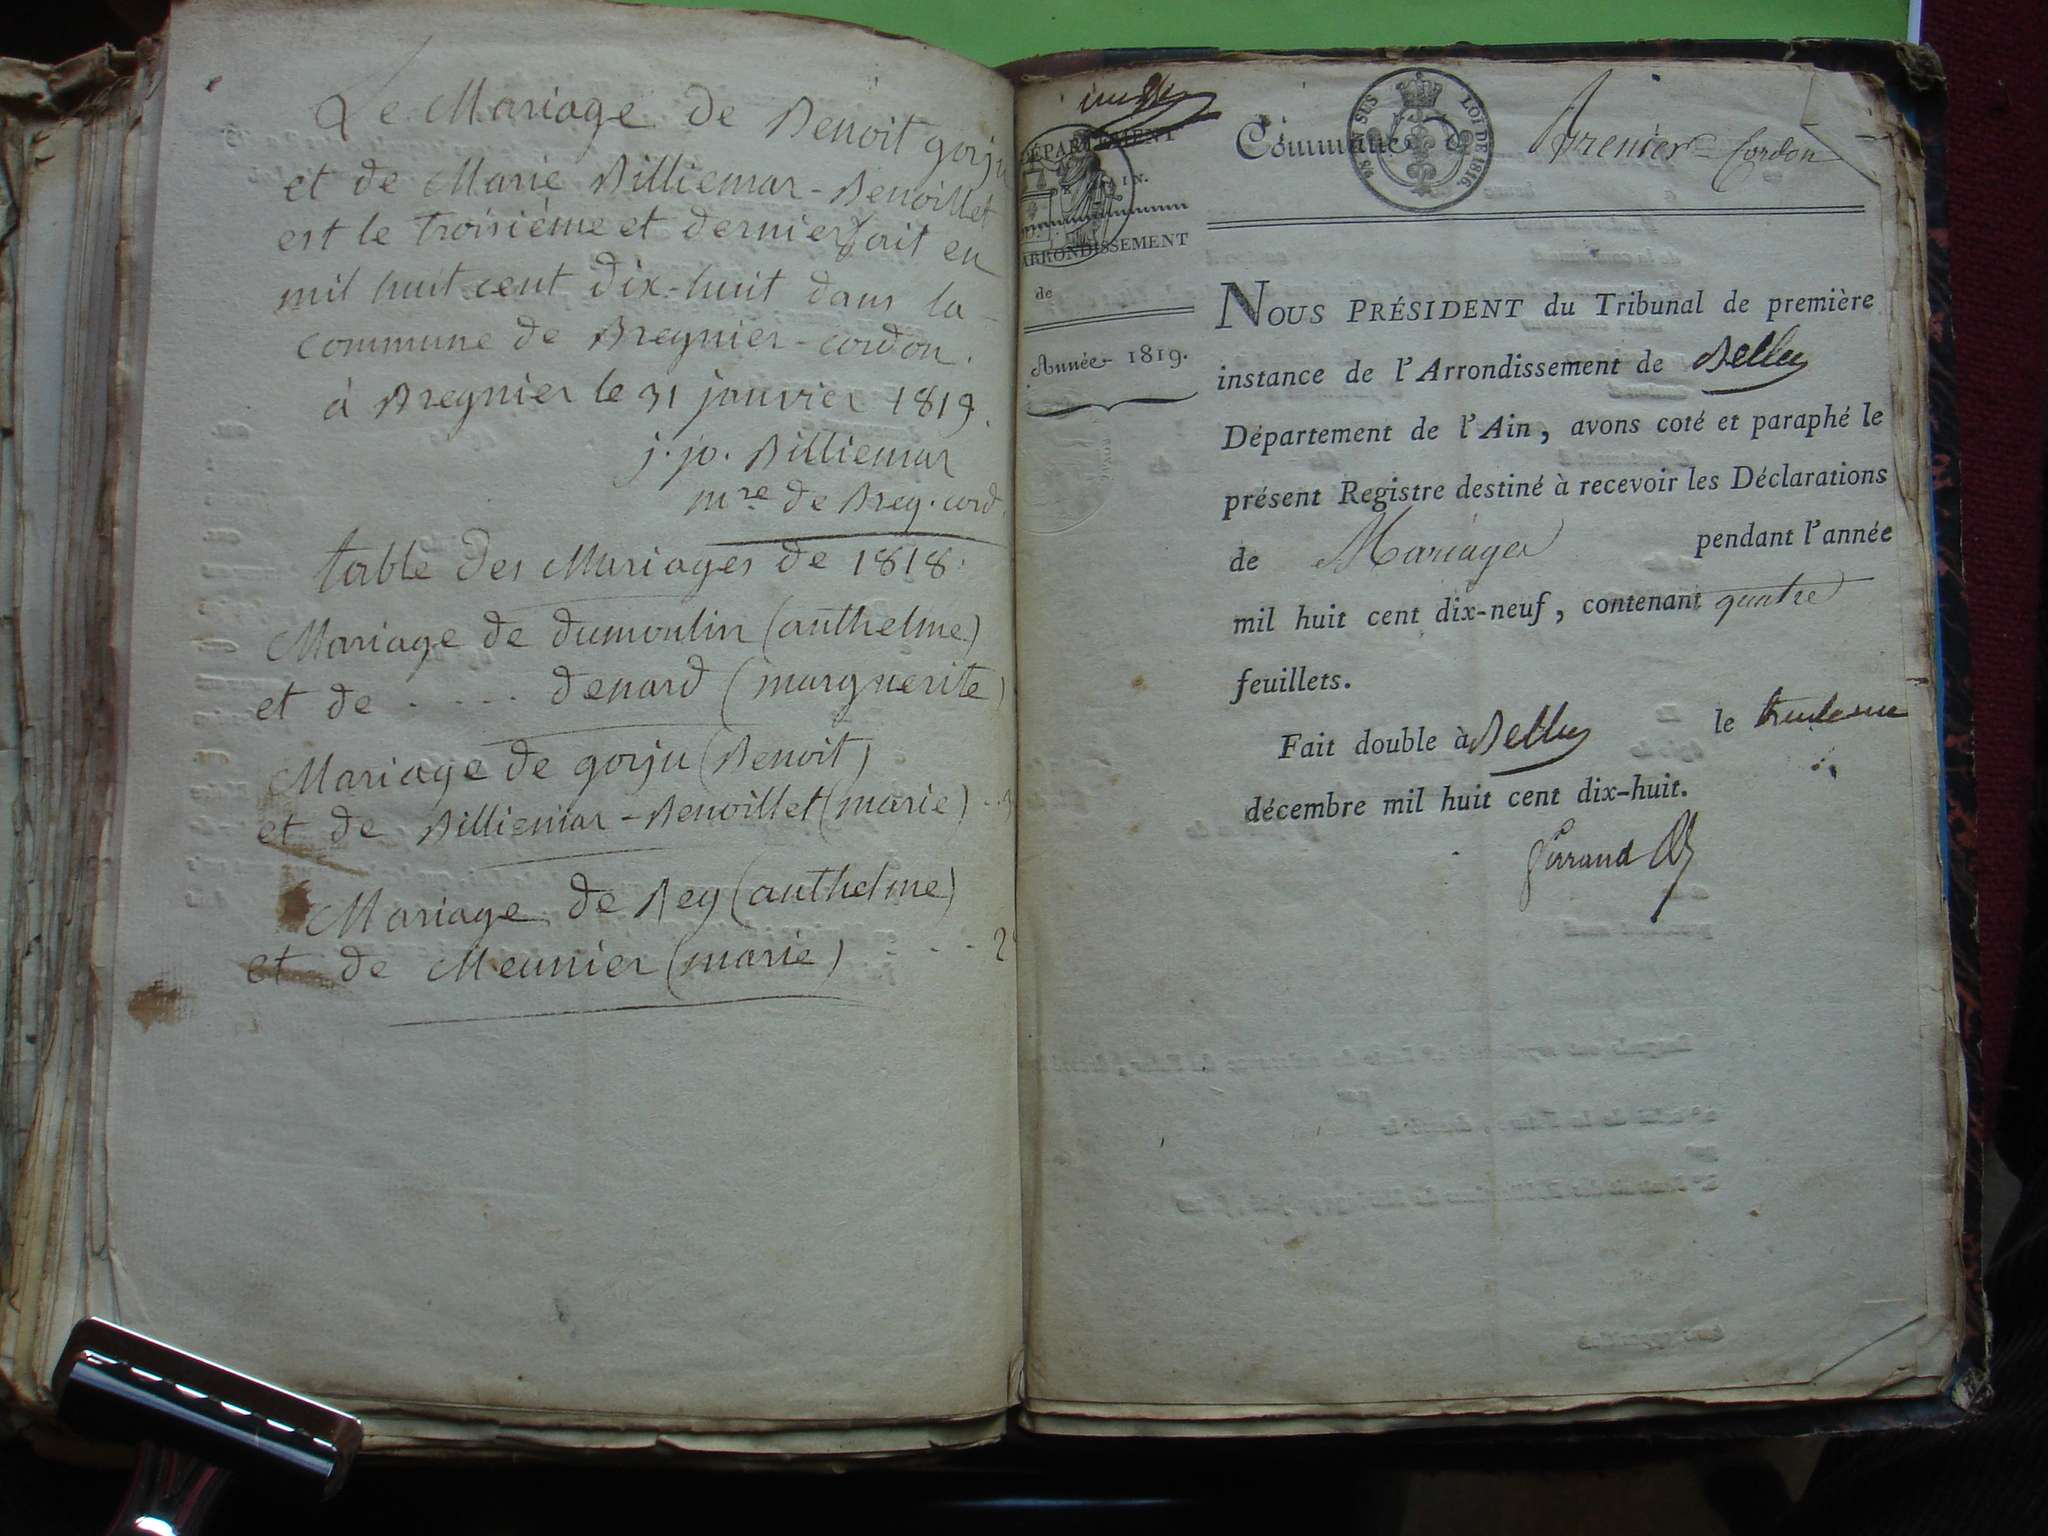 Le Mariage de Benoit gorju
et de Marie Billiemar-Benoillet
est le troisième et dernier fait en
mil huit cent dix-huit dans la
commune de Bregnier-cordon.
à Bregnier le 31 janvier 1819.
j. jo. Billiemar
mre de Breg. cord.
table des Mariages de 1818.
Mariage de dumoulin (anthelme)
et de . . . . denard (marguerite)
Mariage de gorju (Benoit)
et de Billiemar-Benoillet (marie) . . 3
Mariage de Rey (anthelme)
et de Meunier (marie) . . . 2
DÉPARTEMENT
DE L'AIN.
ARRONDISSEMENT
de
Année 1819.
EN SUS
LOI DE 1816.
Commune de Brenier-Cordon
NOUS PRÉSIDENT du Tribunal de première
instance de l'Arrondissement de Belley
Département de l'Ain, avons coté et paraphé le
présent Registre destiné à recevoir les Déclarations
de Mariages pendant l'année
mil huit cent dix-neuf, contenant quatre
feuillets.
Fait double à Belley le
décembre mil huit cent dix-huit.